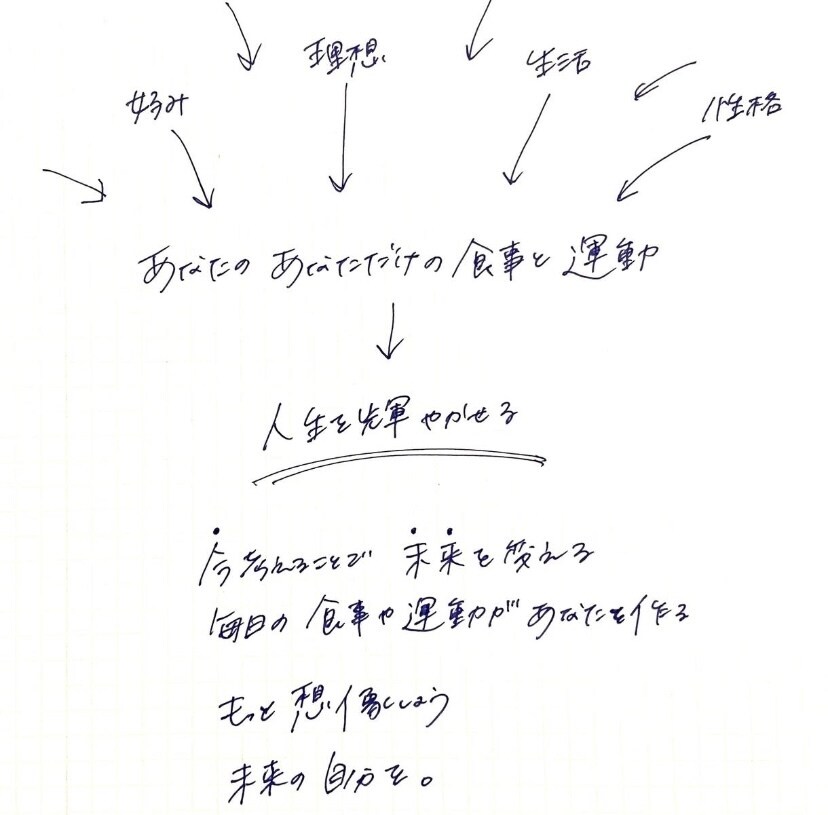 理想
生活
好み
性格
あなたの あなただけの 食事と 運動
人生を輝やかせる
今考えることで 未来を変える
毎日の 食事や 運動が あなたを作る
もっと 想像しよう
未来の 自分を。